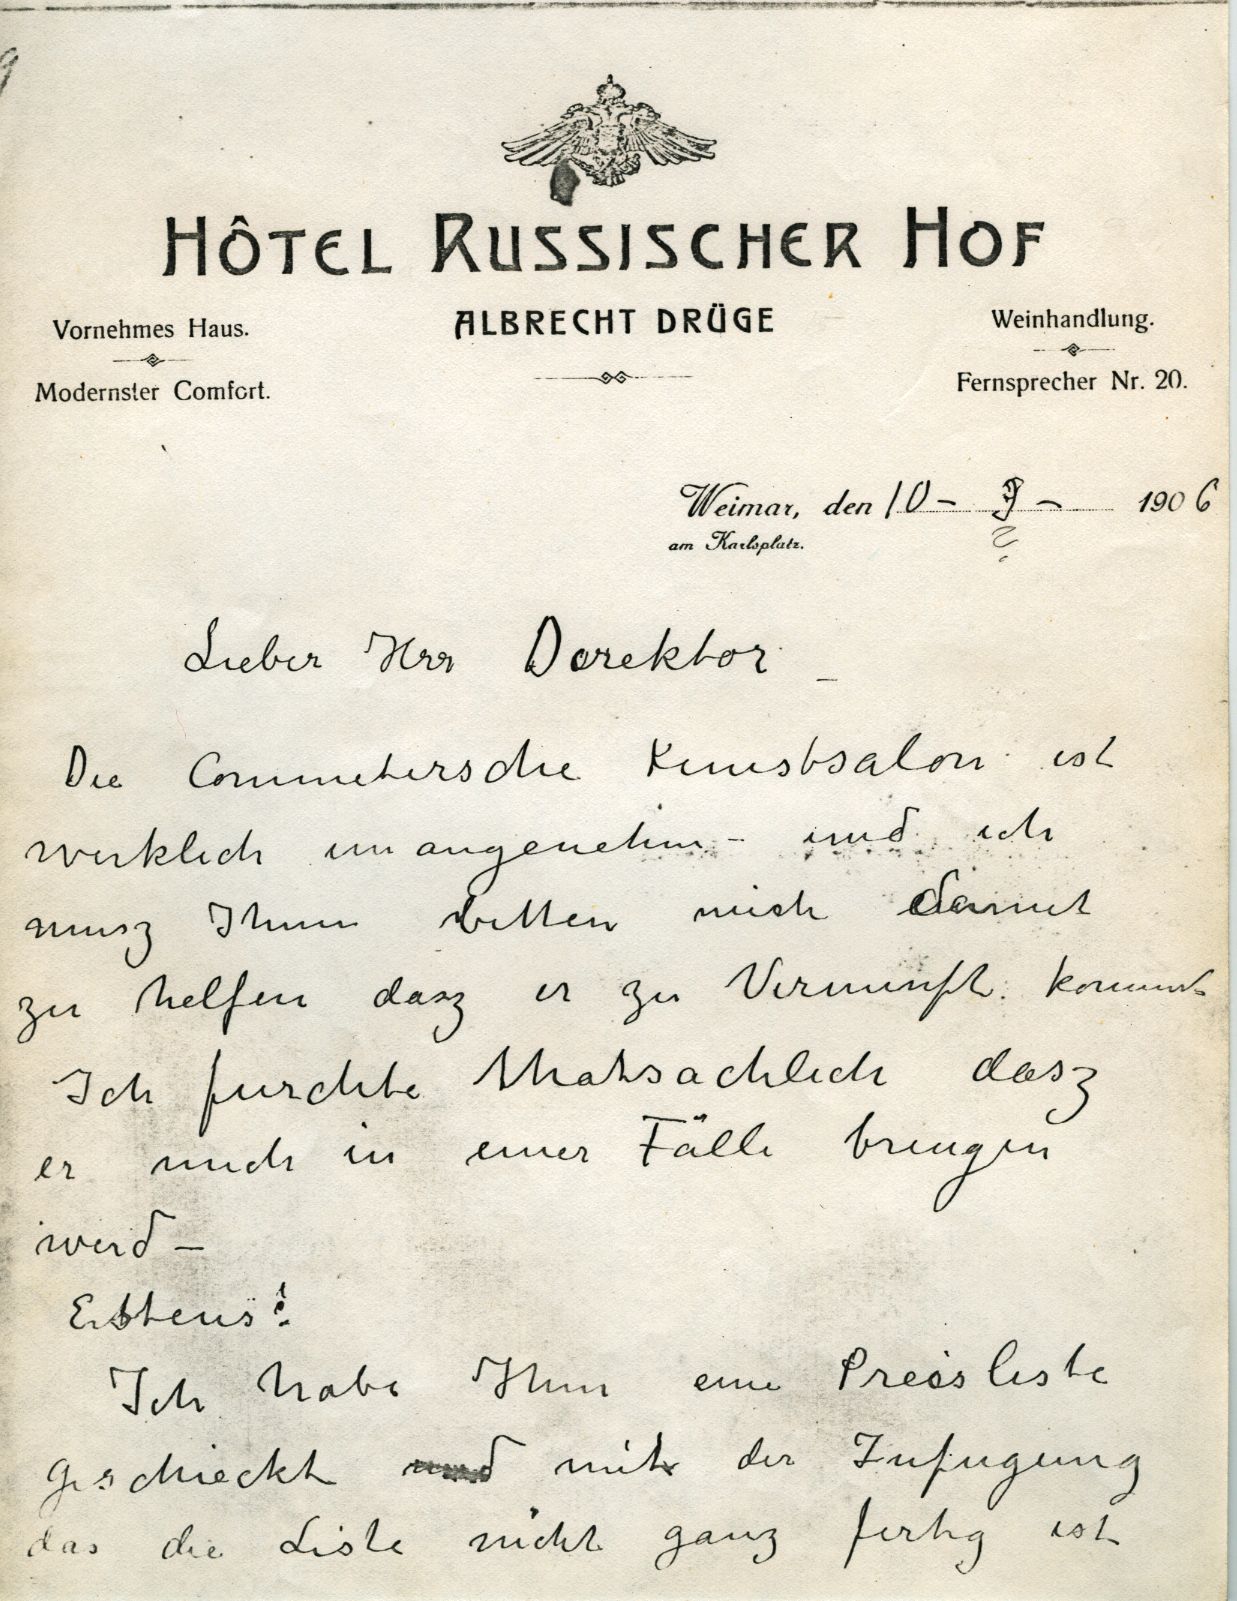 HÔTEL RUSSISCHER HOF
ALBRECHT DRÜGE
Vornehmes Haus.
Modernster Comfort.
Weinhandlung.
Fernsprecher Nr. 20.
Weimar, den 10 – – 1906
am Karlsplatz.
Lieber Herr Direktor –
Die Commetersche Kunstsalon ist
wirklich unangenehm – und ich
musz Ihnen bitten mich damit
zu helfen dasz er zu Vernunft kommt
Ich furchte thatsachlich dasz
er mich in einer Fälle bringen
wird –
Erstens:
Ich habe Ihnen eine Preisliste
geschieckt mit der Zufugung
das die Liste nicht ganz fertig ist